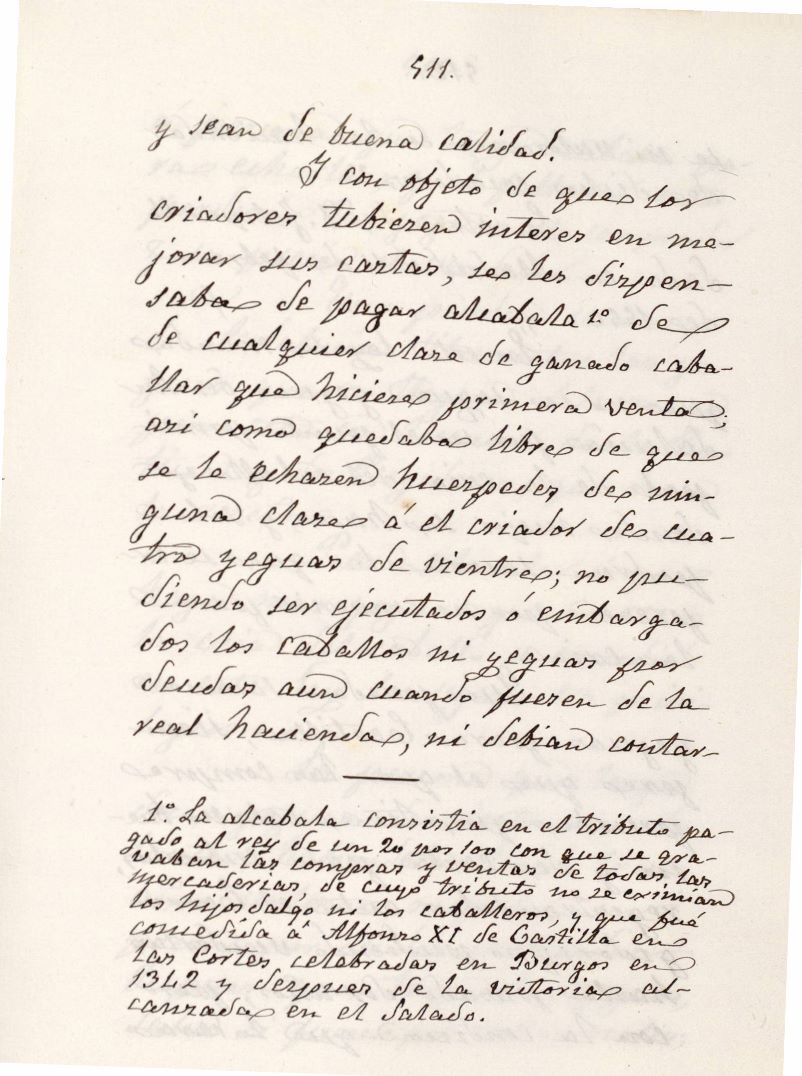 511.
y sean de buena calidad.
Y con objeto de que los
criadores tubiesen interes en me-
jorar sus castas, se les dispen-
saba de pagar alcabala 1º de
de cualquier clase de ganado caba-
llar que hiciese primera venta;
asi como quedaba libre de que
se le echasen huespedes de nin-
guna clase á el criador de cua-
tro yeguas de vientre; no pu-
diendo ser ejecutados ó embarga-
dos los caballos ni yeguas por
deudas aun cuando fuesen de la
real hacienda, ni debian contar-
1º La alcabala consistia en el tributo pa-
gado al rey de un 20 por 100 con que se gra-
vaban las compras y ventas de todas las
mercaderias, de cuyo tributo no se eximian
los hijosdalgo ni los caballeros, y que fué
concedida á Alfonso XI de Castilla en
las Cortes celebradas en Burgos en
1342 y despues de la victoria al-
canzada en el Salado.